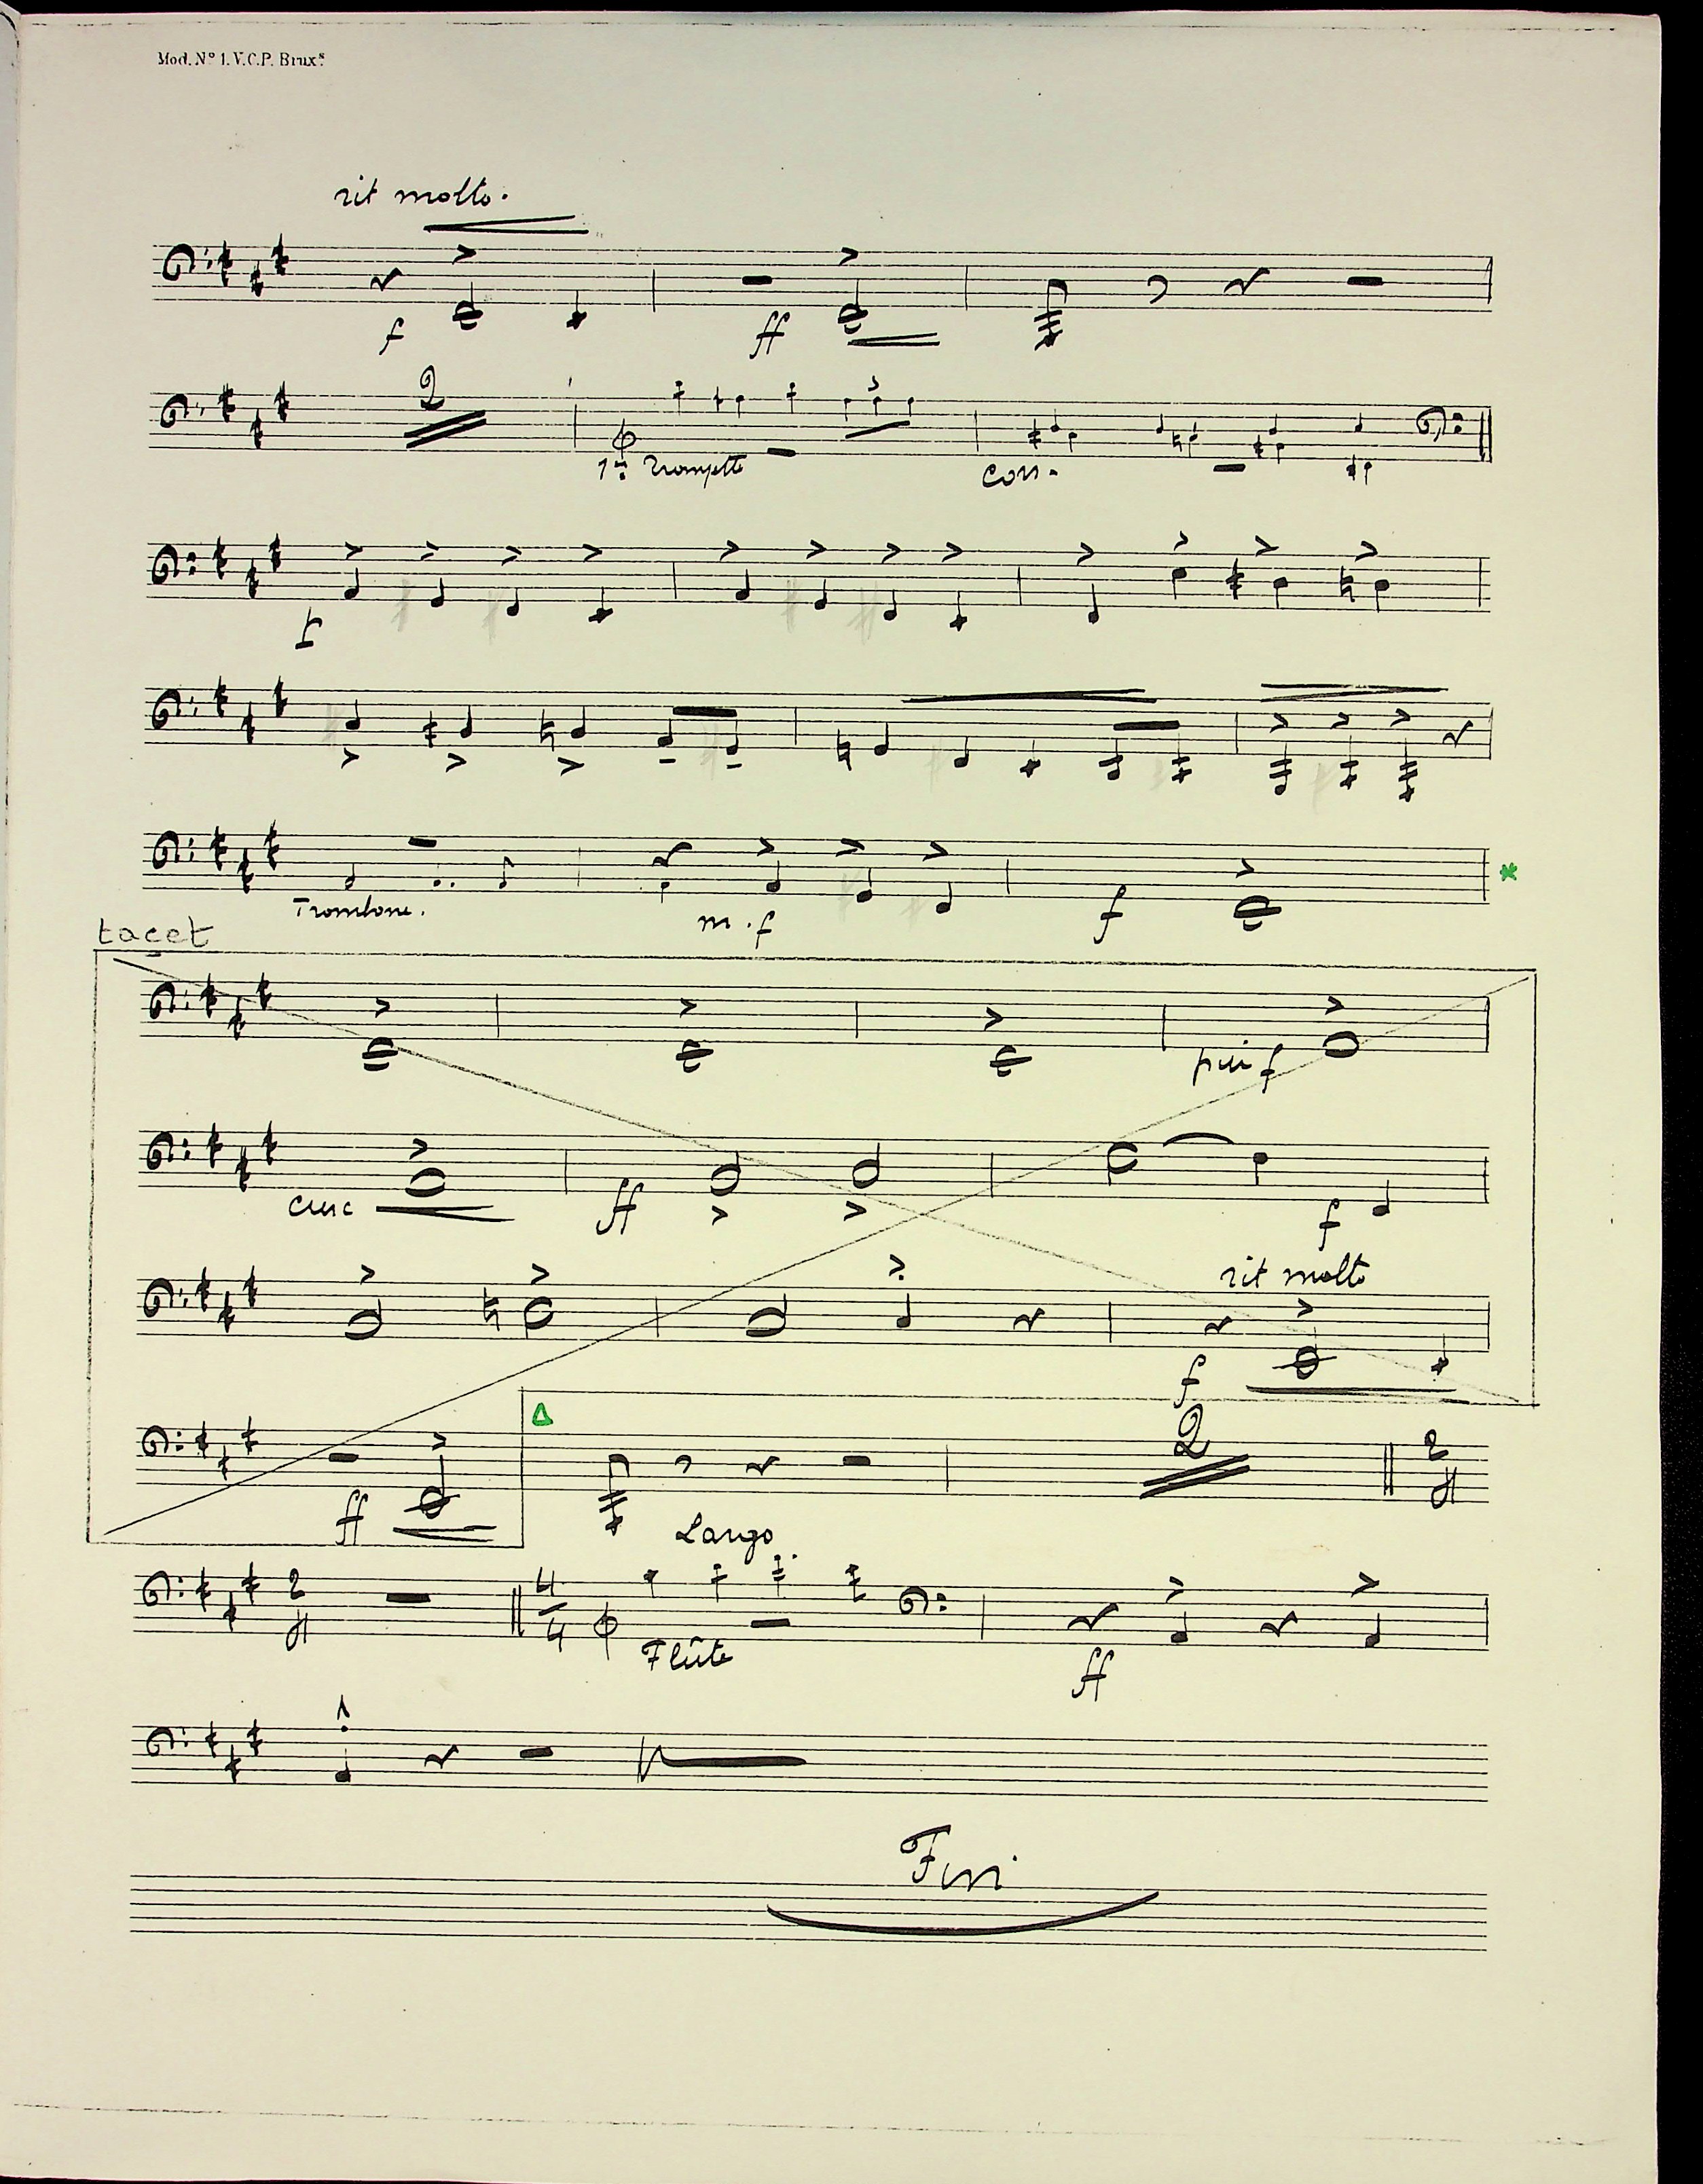 Mod. Nº 1. V.C.P. Brux^s.
rit molto.
f ff
2
1re Trompette Cors.
f
Trombone. m.f f
tacet
più f
cresc ff f
rit molto
f
2 2
ff
Largo
2 4
4
Flûte
ff
Fin